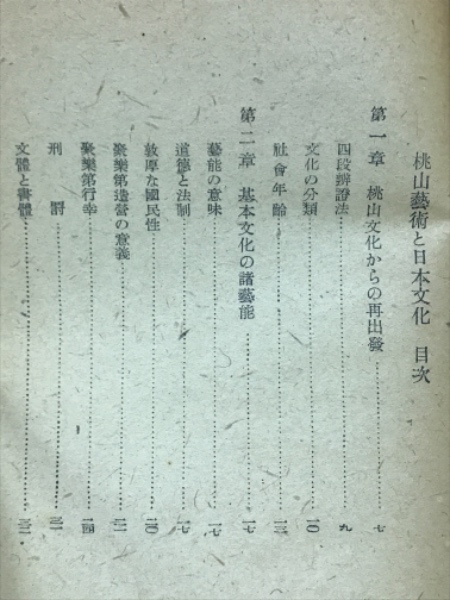 桃山藝術と日本文化　目次
第一章　桃山文化からの再出發……七
四段辨證法……九
文化の分類……一〇
社會年齡……一三
第二章　基本文化の諸藝能……一七
藝能の意味……一七
道德と法制……一七
敦厚な國民性……二〇
聚樂第造營の意義……二一
聚樂第行幸……二四
刑罰……三一
文體と書體……三二